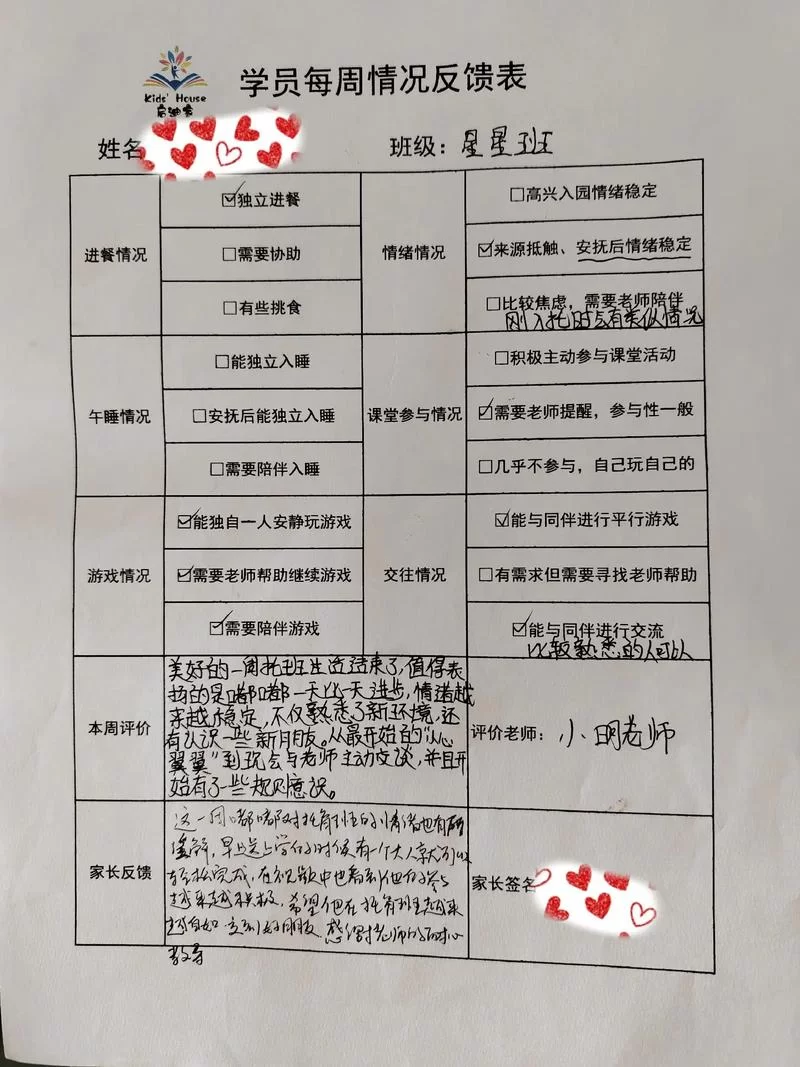 Kids' House
启迪家
学员每周情况反馈表
姓名
班级：星星班
进餐情况
☑独立进餐
□需要协助
□有些挑食
情绪情况
□高兴入园情绪稳定
☑来源抵触、安抚后情绪稳定
□比较焦虑，需要老师陪伴
刚入托时会有类似情况
午睡情况
□能独立入睡
□安抚后能独立入睡
□需要陪伴入睡
课堂参与情况
□积极主动参与课堂活动
☑需要老师提醒，参与性一般
□几乎不参与，自己玩自己的
游戏情况
☑能独自一人安静玩游戏
☑需要老师帮助继续游戏
☑需要陪伴游戏
交往情况
☑能与同伴进行平行游戏
□有需求但需要寻找老师帮助
☑能与同伴进行交流
比较熟悉的人可以
本周评价
美好的一周托班生活结束了，值得表
扬的是嘟嘟一天比一天进步，情绪越
来越稳定，不仅熟悉了新环境，还
有认识一些新朋友。从最开始的“小心
翼翼”到现会与老师主动交谈，并且开
始有了一些规则意识。
评价老师：小明老师
家长反馈
这一周嘟嘟对托育班的情绪也有所
缓解，早上送上学的时候有一个大人就可以
轻松完成，在视频中也看到他的参与
越来越积极，希望他在托育班越来
越自如 交到好朋友 感谢老师的耐心
教导
家长签名